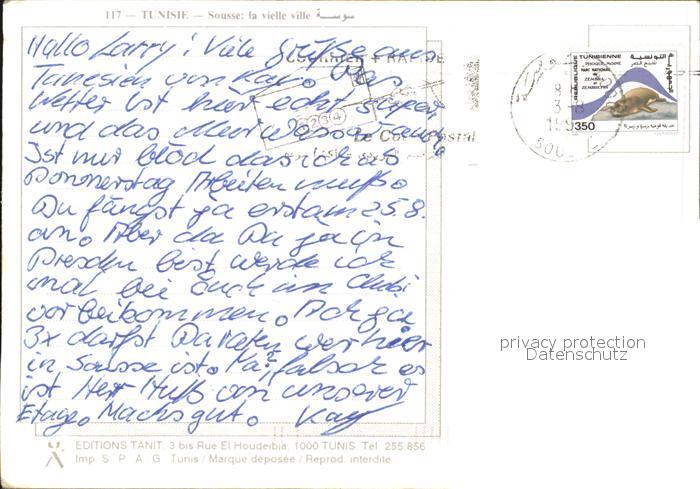 117 – TUNISIE – Sousse: la vielle ville سوسة
Hallo Larry! Viele Grüße aus
Tunesien von Kay. Das
Wetter ist hier echt super
und das Meerwasser auch
Ist nur blöd das ich ab
Donnerstag Arbeiten muß.
Du fängst ja erst am 25.8.
an. Aber da Du ja in
Dresden bist werde ich
mal bei Euch im Clubi
vorbeikommen. Ach ja
3x darfst Du raten wer hier
in Sousse ist. Na, falsch es
ist Herr Huß von unserer
Etage. Machs gut. Kay
COURRIER + RAPIDE
1234
Le Code Postal
REPUBLIQUE TUNISIENNE
PHOQUE MOINE
PARC NATIONAL
DE
ZEMBRA ET
ZEMBRETTA
350
SOUSSE
privacy protection
Datenschutz
EDITIONS TANIT. 3 bis Rue El Houdeibia. 1000 TUNIS. Tel. 255.856
Imp S P A G Tunis / Marque déposée / Reprod. interdite